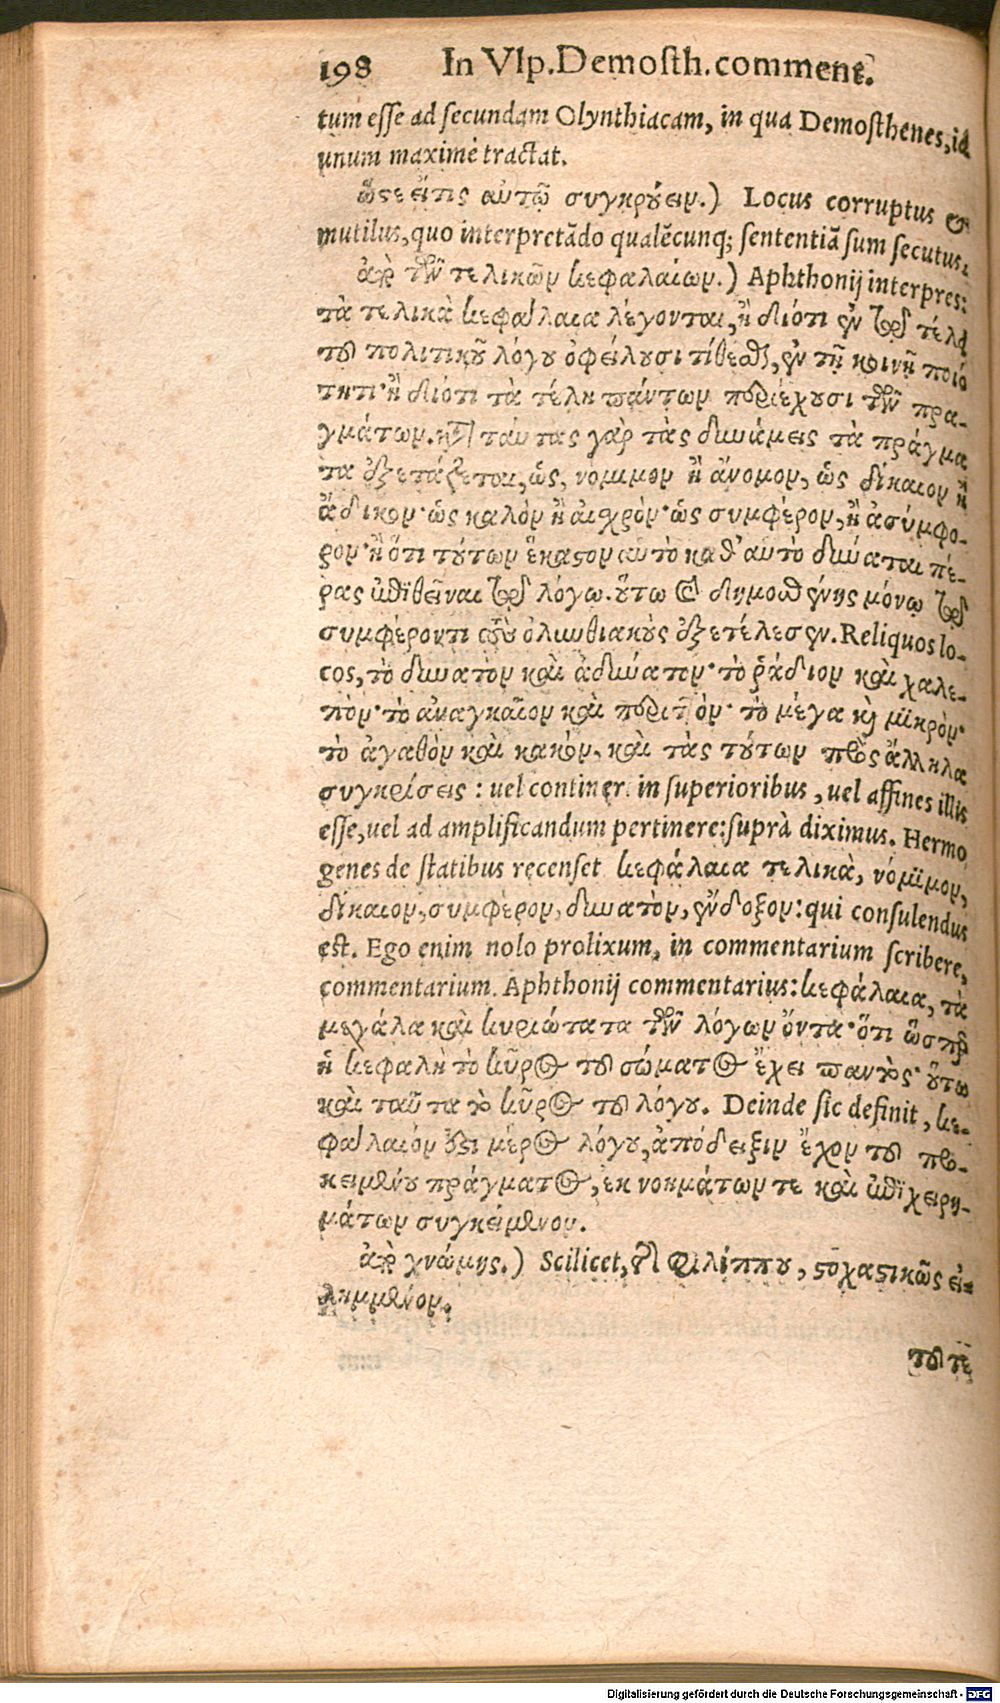 198 In Vlp. Demosth. comment.
tum esse ad secundam Olynthiacam, in qua Demosthenes, id
unum maximè tractat.
ὥστε εἴ τις αὐτῷ συγκρούειν.) Locus corruptus &
mutilus, quo interpretãdo qualẽcunq; sententiã sum secutus.
ἀπὸ τῶν τελικῶν κεφαλαίων.) Aphthonij interpres:
τὰ τελικὰ κεφάλαια λέγονται, ἢ διότι ἐν τῷ τέλει
τοῦ πολιτικοῦ λόγου ὀφείλουσι τίθεσθαι, ἐν τῇ κοινῇ ποιό
τητι· ἢ διότι τὰ τέλη πάντων περιέχουσι τῶν πρα-
γμάτων. κατὰ ταύτας γὰρ τὰς δυνάμεις τὰ πράγμα
τα ἐξετάζεται, ὡς, νόμιμον ἢ ἄνομον, ὡς δίκαιον ἢ
ἄδικον· ὡς καλὸν ἢ αἰσχρὸν· ὡς συμφέρον, ἢ ἀσύμφο-
ρον· ἢ ὅτι τούτων ἕκαστον αὐτὸ καθ' αὑτὸ δύναται πέ-
ρας ἐπιθεῖναι τῷ λόγῳ. οὕτω ὁ δημοσθένης μόνῳ τῷ
συμφέροντι τοὺς ὀλυνθιακοὺς ἐξετέλεσεν. Reliquos lo-
cos, τὸ δυνατὸν καὶ ἀδύνατον· τὸ ῥᾴδιον καὶ χαλε-
πὸν· τὸ ἀναγκαῖον καὶ περιττὸν· τὸ μέγα καὶ μικρὸν·
τὸ ἀγαθὸν καὶ κακὸν, καὶ τὰς τούτων πρὸς ἄλληλα
συγκρίσεις: uel contineri in superioribus, uel affines illis
esse, uel ad amplificandum pertinere: suprà diximus. Hermo
genes de statibus recenset κεφάλαια τελικὰ, νόμιμον,
δίκαιον, συμφέρον, δυνατὸν, ἔνδοξον: qui consulendus
est. Ego enim nolo prolixum, in commentarium scribere,
commentarium. Aphthonij commentarius: κεφάλαια, τὰ
μεγάλα καὶ κυριώτατα τῶν λόγων ὄντα· ὅτι ὥσπερ
ἡ κεφαλὴ τὸ κῦρος τοῦ σώματος ἔχει παντὸς· οὕτω
καὶ ταῦτα τὸ κῦρος τοῦ λόγου. Deinde sic definit, κε-
φάλαιόν ἐστι μέρος λόγου, ἀπόδειξιν ἔχον τοῦ προ-
κειμένου πράγματος, ἐκ νοημάτων τε καὶ ἐπιχειρη-
μάτων συγκείμενον.
ἀπὸ γνώμης.) Scilicet, τοῦ Φιλίππου, στοχαστικῶς εἰ-
λημμένον.
τοῦ τε
Digitalisierung gefördert durch die Deutsche Forschungsgemeinschaft - DFG